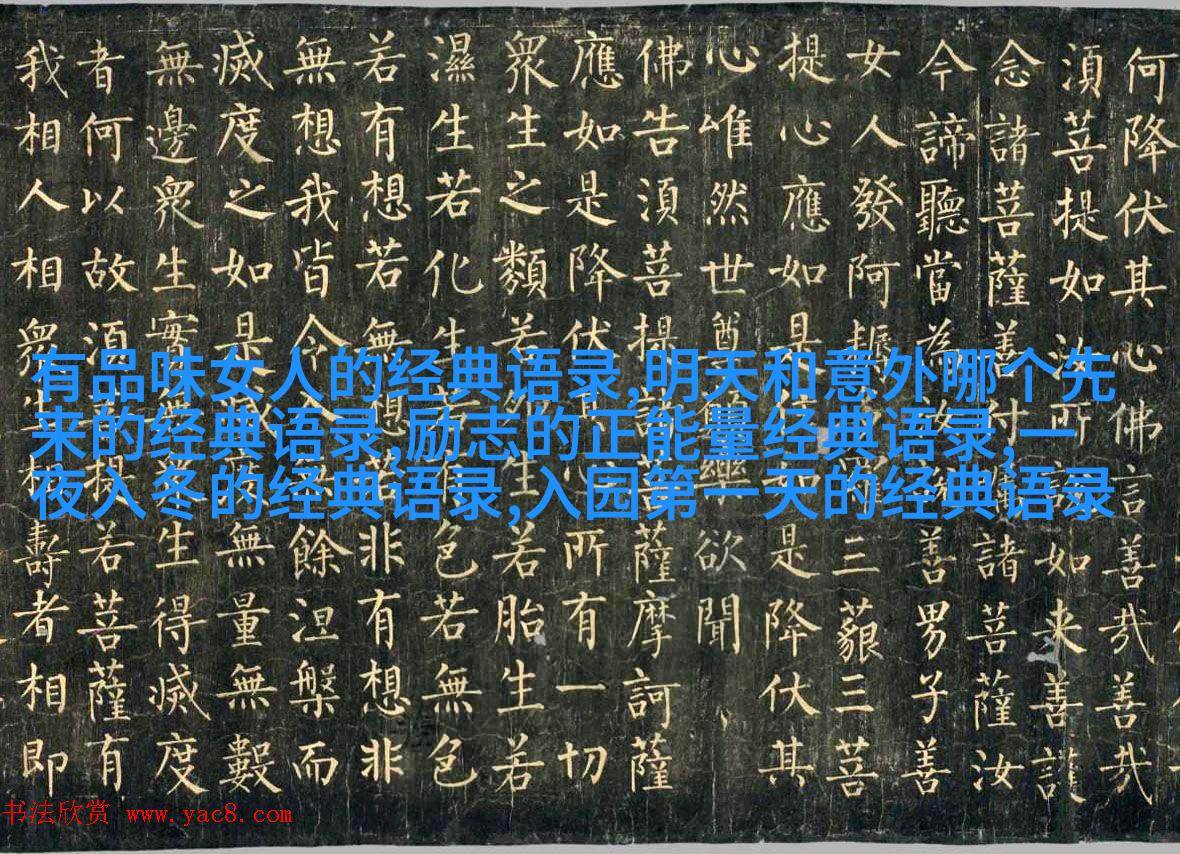 何降伏其心佛言善哉善哉
須菩提如汝所如来善護
念諸菩薩善付諸菩薩汝
今諦聽當為汝善男子善
女人發阿耨三藐三菩
提心應如是住是降伏其
心唯然世尊願樂欲聞
佛告須菩提諸菩薩摩訶薩
應如是降伏其心所有一切
衆生之類若卵生若胎生若
濕生若化生若有色若無色
若有想若無想若非有想非
無想我皆令入餘涅槃而
滅度之如是滅度無量無數
無邊衆生實無衆生得滅度
者何以故須菩提若菩薩有
我相人相衆生相壽者相即
有品味女人的经典语录,明天和意外哪个先
来的经典语录,励志的正能量经典语录,一
夜入冬的经典语录,入园第一天的经典语录
书法欣赏 www.yac8.com